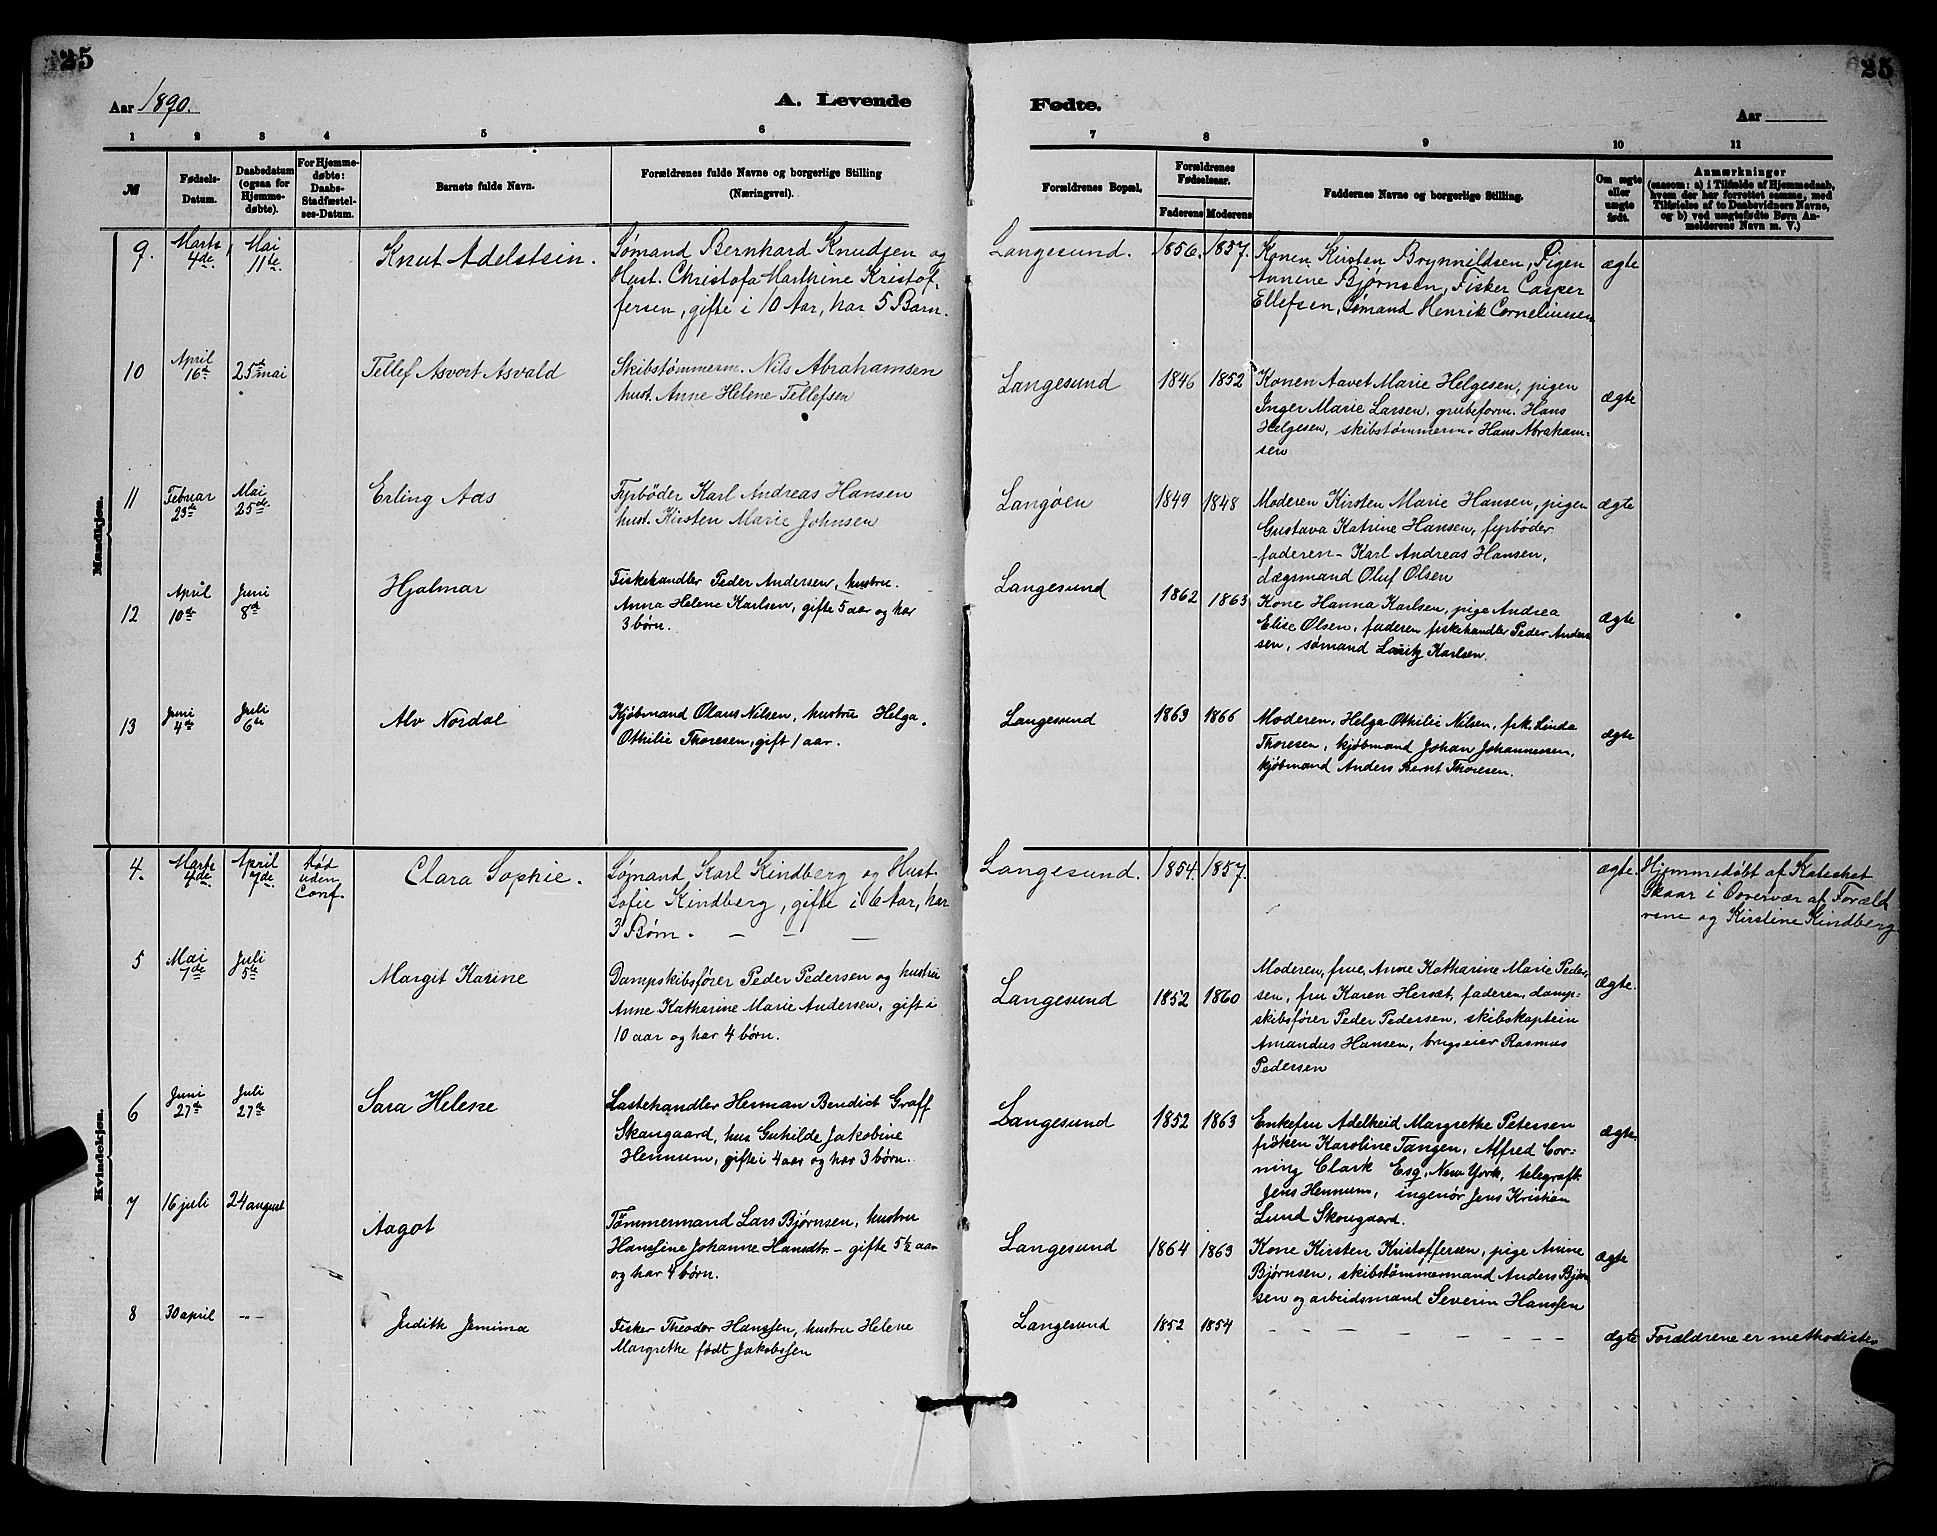 25
Aar 1890.
A. Levende
1 2 3 4 5 6
№
Fødsels-Datum.
Daabedatum (ogsaa for Hjemmedøbte).
For Hjemmedøbte: Daabs-Stadfæstelses-Datum.
Barnets fulde Navn.
Forældrenes fulde Navne og borgerlige Stilling
(Næringsvei).
Mandkjøn.
9. Marts 4de Mai 11te Knut Adelstein. Sømand Bernhard Knudsen og
Hust. Christofa Marthine Kristof-
fersen, gifte i 10 Aar, har 5 Barn.
10 April 16de 25de mai Tellef Asvort Asvald Skibstømmerm. Nils Abrahamsen
hust. Anne Helene Tellefsen
11 Februar 23de Mai 25de Erling Aas Fyrbøder Karl Andreas Hansen
hust. Kirsten Marie Johnsen
12 April 10de Juni 8de Hjalmar Fiskehandler Peder Andersen, hustru
Anna Helene Karlsen, gifte 5 aar og har
3 børn.
13 Juni 4de Juli 6te Alv Nordal Kjøbmand Olaus Nilsen, hustru Helga
Othilie Thoresen, gift 1 aar.
Kvindekjøn.
4. Marts 4de April 7de Død uden Conf. Clara Sophie. Sømand Karl Kindberg og Hust.
Sofie Kindberg, gifte i 6 Aar, har
3 Børn. — — —
5 Mai 7de Juli 5te Margit Karine Dampskibsfører Peder Pedersen og hustru
Anne Katharine Marie Andersen, gift i
10 aar og har 4 børn.
6 Juni 27de Juli 27de Sara Helene Lastehandler Herman Bendict Graff
Skaugaard, hus Guhilde Jakobine
Hennum, gifte i 4 aar og har 3 børn.
7 16 juli 24 august Aagot Tømmermand Lars Bjørnsen, hustru
Hansine Johanne Hansdtr. – gifte 5½ aar
og har 4 børn.
8 30 april -„- Judith Jemima Fisker Theodor Hanssen, hustru Helene
Margrethe født Jakobssen
25
Fødte.
Aar
7 8 9 10 11
Forældrenes Bopæl.
Forældrenes Fødselsaar.
Faderens Moderens
Faddernes Navne og borgerlige Stilling.
Om ægte eller uægte født.
Anmærkninger
(saasom: a) i Tilfælde af Hjemmedaab,
hvem der har forrettet samme, med
Tilføielse af to Daabsvidners Navne,
og b) ved uægtefødte Børn An-
melderens Navn m. V.)
Langesund. 1856. 1857. Konen Kirsten Brynnildsen, Pigen ægte
Annine Bjørnsen, Fisker Casper
Ellefsen, Sømand Henrik Corneliussen
Langesund 1846 1852 Konen Aavet Marie Helgesen, pigen ægte
Inger Marie Larsen, grubeform. Hans
Helgesen, skibstømmerm. Hans Abraham-
sen
Langøen 1849 1848 Moderen Kirsten Marie Hansen, pigen ægte
Gustava Katrine Hansen, fyrbøder
-faderen- Karl Andreas Hansen,
dægsmand Oluf Olsen
Langesund 1862 1863 Kone Hanna Karlsen, pige Andrea ægte
Elise Olsen, faderen fiskehandler Peder Ander-
sen, sømand Lauritz Karlsen.
Langesund 1863 1866 Moderen, Helga Othilie Nilsen, frk. Linda ægte
Thoresen, kjøbmand Johan Johannessen,
kjøbmand Anders Bernt Thoresen.
Langesund. 1854. 1857. ægte. Hjemmedøbt af Katechet
Skaar i Overvær af Foræld
rene og Kirstine Kindberg
Langesund 1852 1860 Moderen, frue, Anne Katharine Marie Peder- ægte.
sen, fru Karen Hersæt, faderen, damp-
skibsfører Peder Pedersen, skibskaptein
Amandus Hansen, brugseier Rasmus
Pedersen
Langesund 1852 1863 Enkefru Adelheid Margrethe Petersen ægte.
frøken Karoline Tangen, Alfred Cor-
ning Clark Esq, New York, telegraft.
Jens Hennum, ingenør Jens Kristian
Lund Skougaard.
Langesund 1864 1863 Kone Kirsten Kristoffersen, pige Anine ægte
Bjørnsen, skibstømmermand Anders Bjørn
sen og arbeidsmand Severin Hanssen
Langesund 1852 1854 — — — — — — ægte Forældrene er methodister